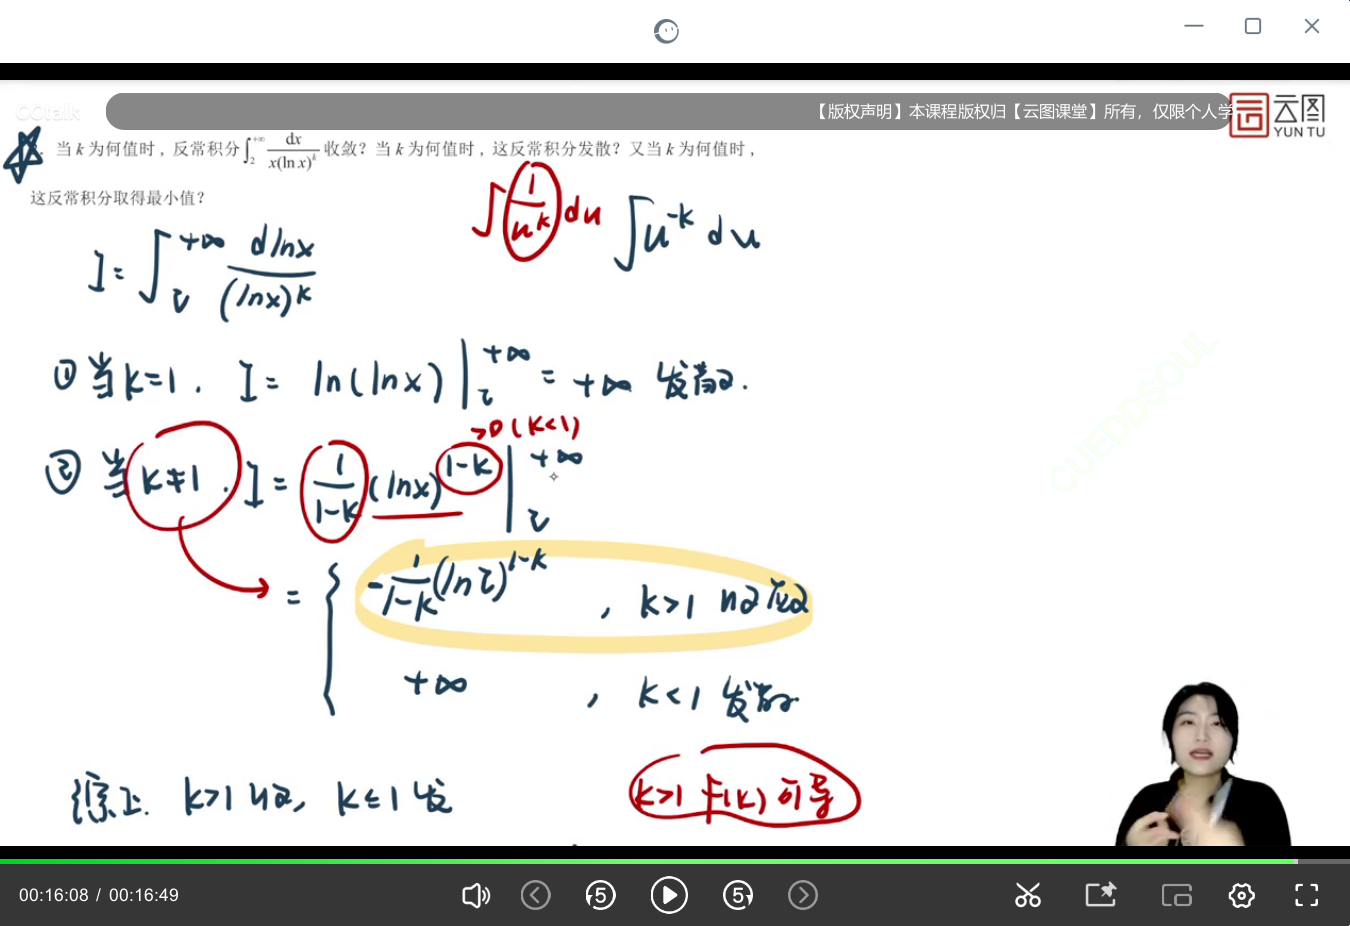 CCtalk
【版权声明】本课程版权归【云图课堂】所有，仅限个人学
云图
YUN TU
当 k 为何值时，反常积分 ∫₂^{+∞} dx/(x(ln x)^k) 收敛？当 k 为何值时，这反常积分发散？又当 k 为何值时，
这反常积分取得最小值？
∫ 1/u^k du ∫ u^{-k} du
I = ∫₂^{+∞} dlnx/(lnx)^k
① 当 k=1. I = ln(lnx) |₂^{+∞} = +∞ 发散.
>0 (k<1)
② 当 k≠1. I = 1/(1-k) (lnx)^{1-k} |₂^{+∞}
= { -1/(1-k) (ln2)^{1-k} , k>1 收敛
+∞ , k<1 发散
综上. k>1 收, k≤1 发
k>1 F(k) 可导
CUEDDSOUL
00:16:08 / 00:16:49
5
5